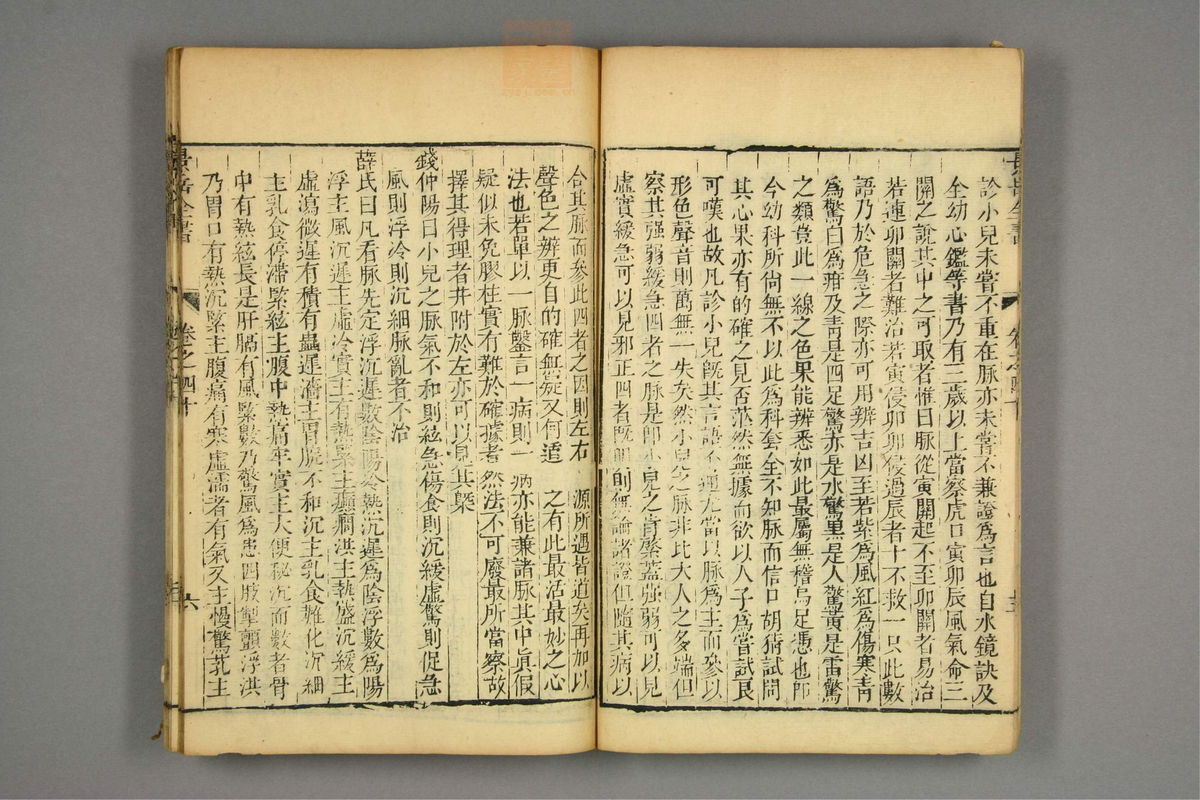 診小兒未嘗不重在脉亦未嘗不兼證爲言也自水鏡訣及
全幼心鑑等書乃有三歲以上當察虎口寅卯辰風氣命三
關之說其中之可取者惟曰脉從寅關起不至卯關者易治
若連卯關者難治若寅侵卯卯侵過辰者十不救一只此數
語乃於危急之際亦可用辨吉凶至若紫爲風紅爲傷寒青
爲驚白爲疳及青是四足驚赤是水驚黑是人驚黃是雷驚
之類竟此一線之色果能辨悉如此最屬無稽烏足憑也卽
今幼科所尚無不以此爲科套全不知脉而信口胡猜試問
其心果亦有的確之見否茫然無據而欲以人子爲嘗試良
可嘆也故凡診小兒旣其言語不通尤當以脉爲主而參以
形色聲音則萬無一失矣然小兒之脉非比大人之多端但
察其强弱緩急四者之脉是卽小兒之肯綮蓋强弱可以見
虛實緩急可以見邪正四者旣明則無論諸證但隨其病以
合其脉而參此四者之因則左右源所遇皆道矣再加以
聲色之辨更自的確無疑又何適之有此最活最妙之心
法也若單以一脉鑿言一病則一病亦能兼諸脉其中眞假
疑似未免膠柱實有難於確據者然法不可廢最所當察故
擇其得理者幷附於左亦可以見其槩
錢仲陽曰小兒之脉氣不和則絃急傷食則沉緩虛驚則促急
風則浮冷則沉細脉亂者不治
薛氏曰凡看脉先定浮沉遲數陰陽冷熱沉遲爲陰浮數爲陽
浮主風沉遲主虛冷實主有熱緊主癲癇洪主熱盛沉緩主
虛瀉微遲有積有蟲遲濇主胃脘不和沉主乳食難化沉細
主乳食停滯緊絃主腹中熱痛牢實主大便秘沉而數者骨
中有熱絃長是肝膈有風緊數乃驚風爲患四肢掣顫浮洪
乃胃口有熱沉緊主腹痛有寒虛濡者有氣又主慢驚芤主
景岳全書
卷之四十
六